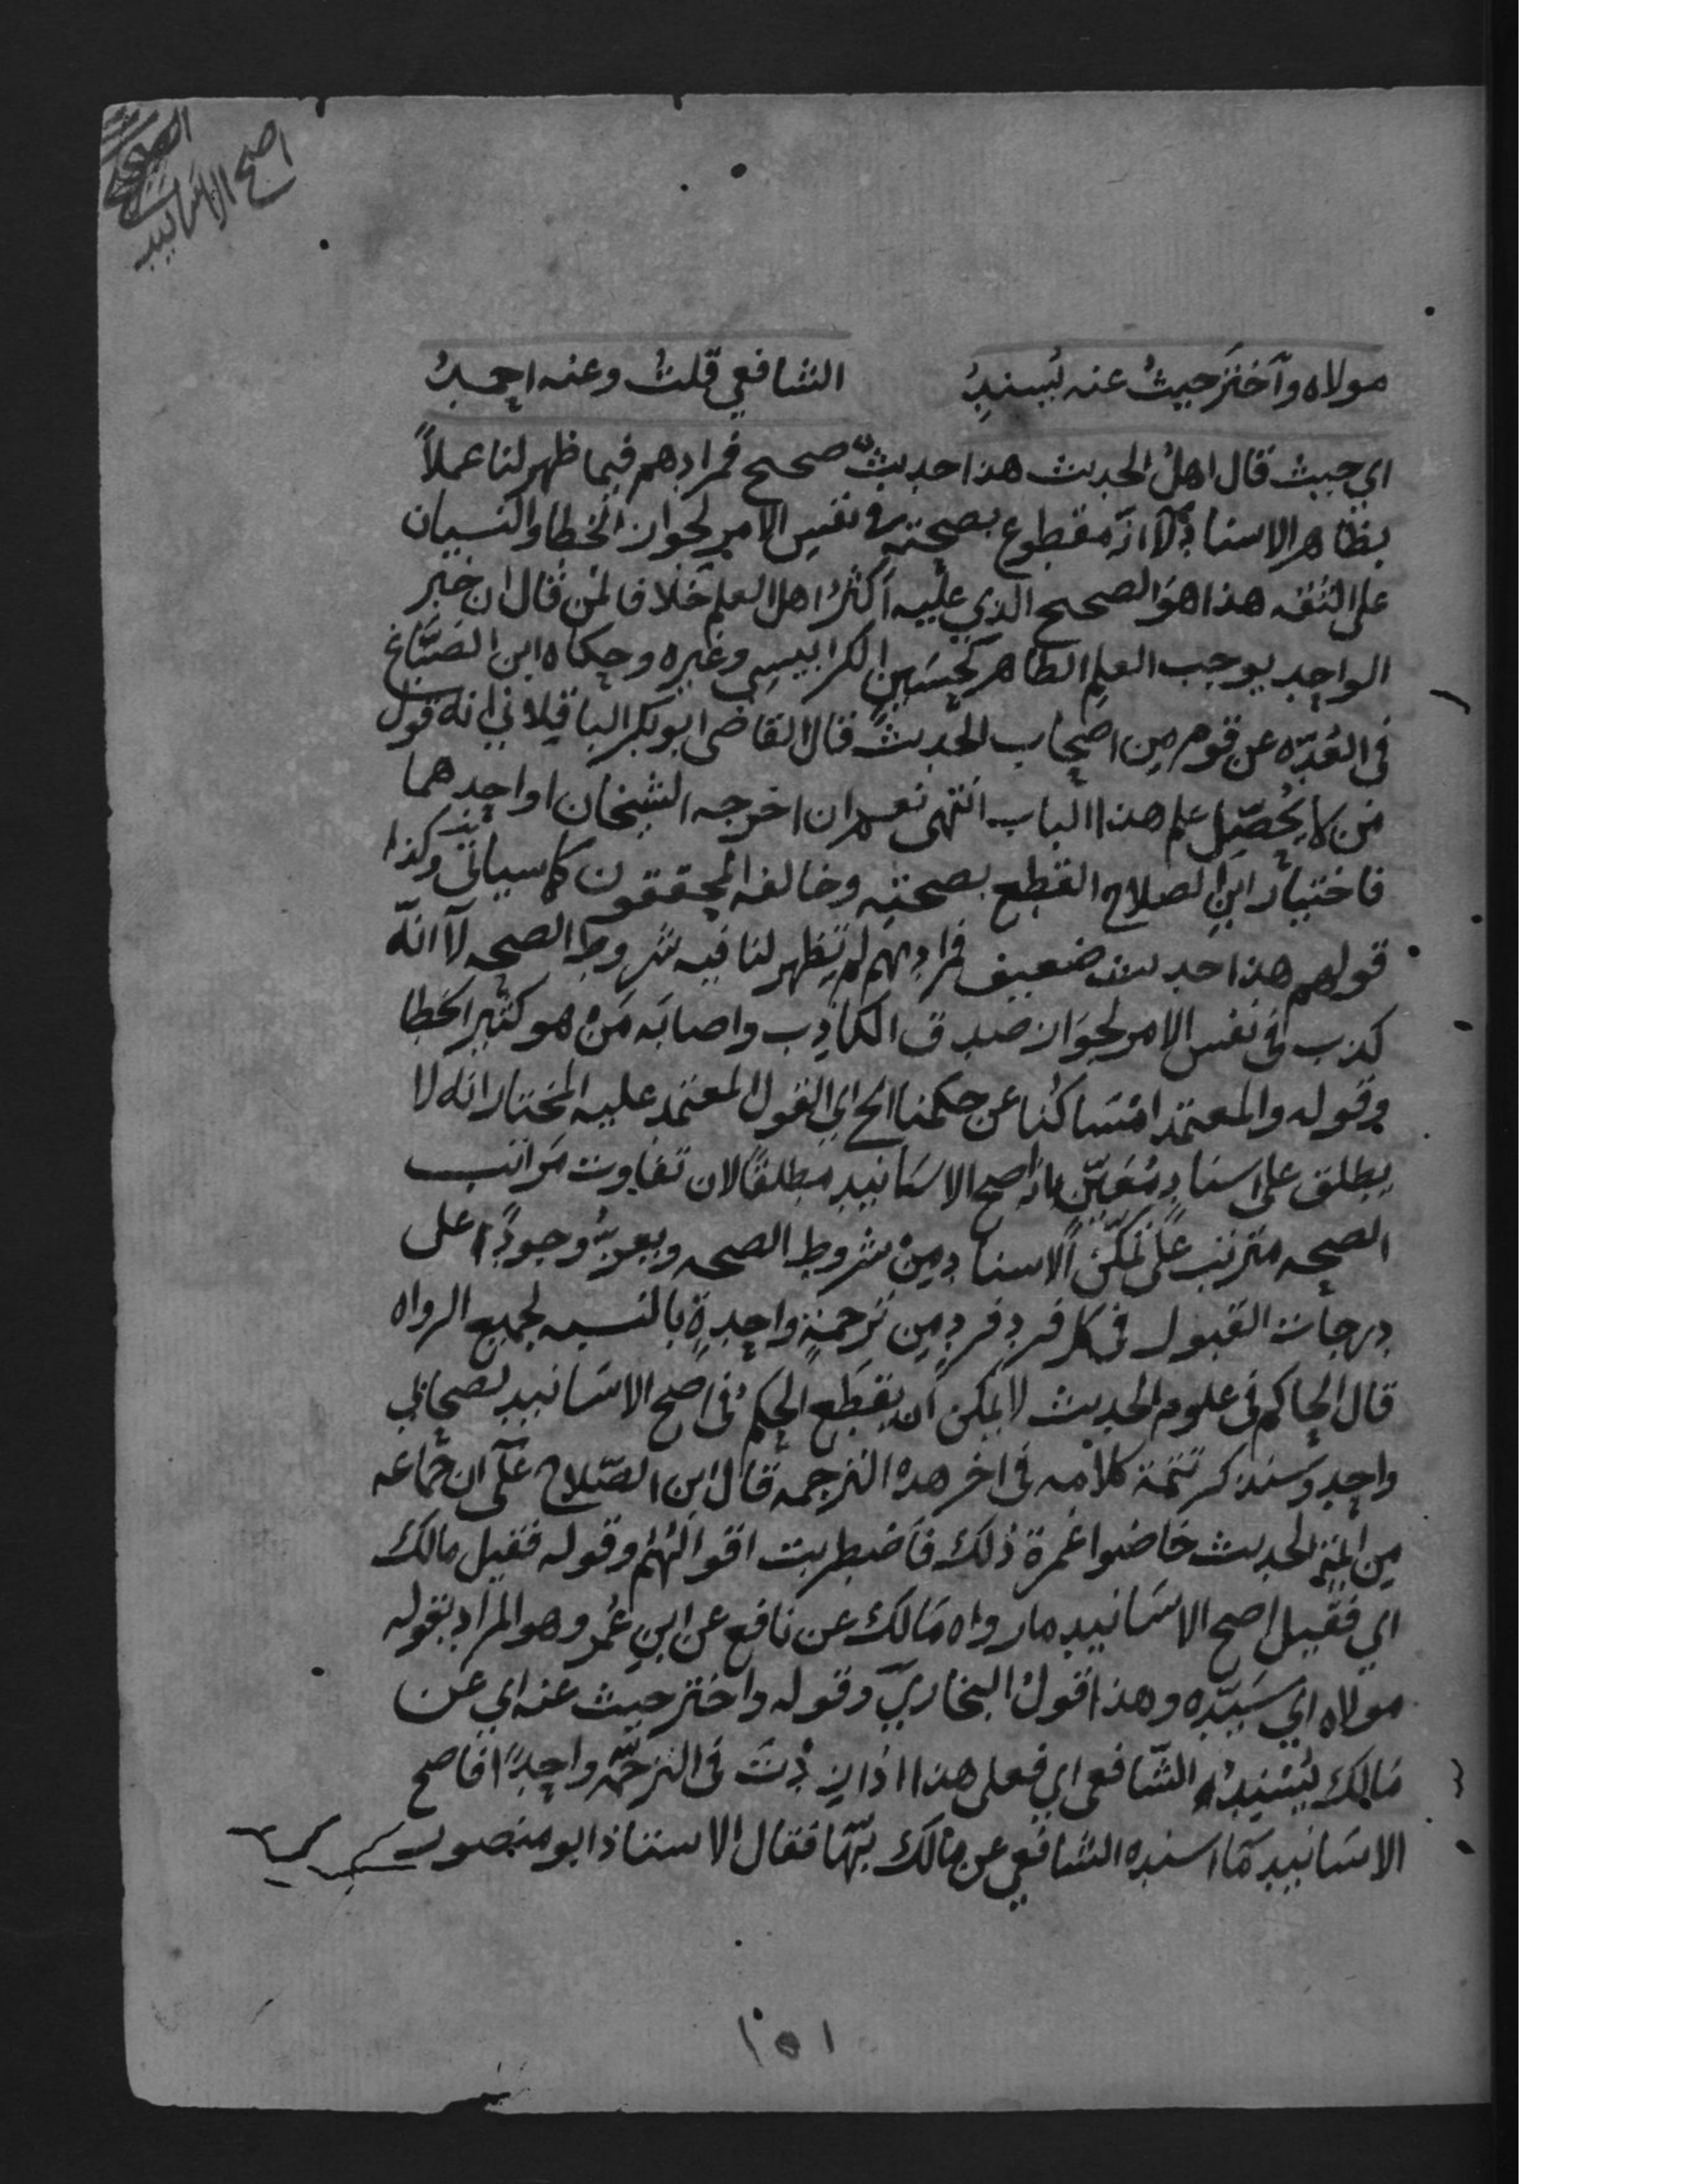 اصح الاسانيد
مولاه وآختر حيثُ عنه يُسنِدُ الشافعي قلتُ وعنه احمدُ
اي حيث قال اهلُ الحديث هذا حديثٌ صحيح فمرادهم فيما ظهر لنا عملاً
بظاهر الاسنادِ لآ انّه مقطوع بصحتهِ في نفسِ الامرِ لجواز الخطا والنسيان
على الثقه هذا هو الصحيح الذي عليه اكثرُ اهل العلم خلافا لمن قال ان خبر
الواحد يوجب العلم الظاهر كحُسَين الكرابيسي وغيره وحكاه ابن الصَّبّاغ
في العُدّه عن قومٍ من اصحاب الحديث قال القاضي ابو بكر الباقلاني انه قول
من لا يُحصّل علم هذا الباب انتهى نعم ان اخرجه الشيخان او احدهما
فاختيار ابنِ الصلاح القطع بصحتِه وخالفه المحققون كما سياتي وكذا
قولهم هذا حديث ضعيف فمرادهم لم يَظهر لنا فيه شروط الصحه لآ انّه
كذب في نفس الامر لجواز صدق الكاذِب واصابَه مَنْ هو كثير الخطا
وقوله والمعتمد امْسَاكُنا عن حكمنا الخ اي القول المعتمد عليه المختار انه لا
يطلق على اسنادٍ مُعَيّن بانه اصح الاسَانيدِ مطلقًا لان تفاوت مَراتب
الصحه مترتب على تمكّن الاسنادِ مِنْ شروط الصحه ويعزّ وجودُ اعلى
درجات القبول في كل فردٍ فردٍ مِن ترجمةٍ واحِدةٍ بالنسبه لجميع الرواه
قال الحاكم في علوم الحديث لا يمكن ان يقطع الحكمُ في اصح الاسَانيد لصحابي
واحد وسَنذكر تتمة كلامه في اخر هذه الترجمه قال ابن الصّلاح علَى ان جماعه
من ائمة الحديث خاضوا غمرة ذلك فاضطربت اقوالُهُم وقوله فقيل مالك
اي فقيل اصح الاسَانيد ما رواه مَالك عن نافع عن ابن عُمر وهو المراد بقوله
مولاه اي سَيّدِه وهذا قولُ البخاريّ وقوله واختر حيث عنه اي عَن
مَالِك يُسْنِدُ الشّافعي اي فعلى هذا اذا زِدتَ في الترجَمَه واحِدًا فاصح
الاسَانيد مَا اسنده الشافعي عن مالك بهَا فقال الاستاذ ابو منصور
١٥١